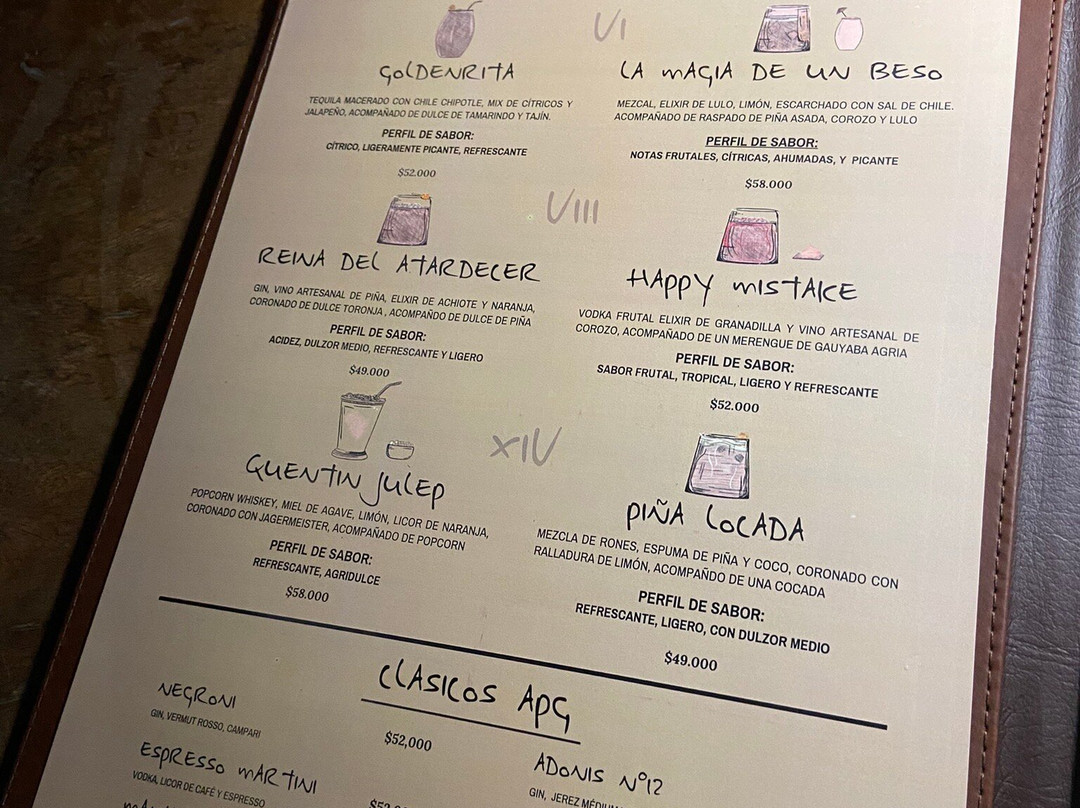 VI
GOLDENRITA
TEQUILA MACERADO CON CHILE CHIPOTLE, MIX DE CÍTRICOS Y
JALAPEÑO, ACOMPAÑADO DE DULCE DE TAMARINDO Y TAJÍN.
PERFIL DE SABOR:
CÍTRICO, LIGERAMENTE PICANTE, REFRESCANTE
$52.000
LA MAGIA DE UN BESO
MEZCAL, ELIXIR DE LULO, LIMÓN, ESCARCHADO CON SAL DE CHILE.
ACOMPAÑADO DE RASPADO DE PIÑA ASADA, COROZO Y LULO
PERFIL DE SABOR:
NOTAS FRUTALES, CÍTRICAS, AHUMADAS, Y PICANTE
$58.000
VIII
REINA DEL ATARDECER
GIN, VINO ARTESANAL DE PIÑA, ELIXIR DE ACHIOTE Y NARANJA,
CORONADO DE DULCE TORONJA , ACOMPAÑDO DE DULCE DE PIÑA
PERFIL DE SABOR:
ACIDEZ, DULZOR MEDIO, REFRESCANTE Y LIGERO
$49.000
HAPPY MISTAKE
VODKA FRUTAL ELIXIR DE GRANADILLA Y VINO ARTESANAL DE
COROZO, ACOMPAÑADO DE UN MERENGUE DE GAUYABA AGRIA
PERFIL DE SABOR:
SABOR FRUTAL, TROPICAL, LIGERO Y REFRESCANTE
$52.000
XIV
QUENTIN JULEP
POPCORN WHISKEY, MIEL DE AGAVE, LIMÓN, LICOR DE NARANJA,
CORONADO CON JAGERMEISTER, ACOMPAÑADO DE POPCORN
PERFIL DE SABOR:
REFRESCANTE, AGRIDULCE
$58.000
PIÑA LOCADA
MEZCLA DE RONES, ESPUMA DE PIÑA Y COCO, CORONADO CON
RALLADURA DE LIMÓN, ACOMPAÑDO DE UNA COCADA
PERFIL DE SABOR:
REFRESCANTE, LIGERO, CON DULZOR MEDIO
$49.000
CLASICOS APG
NEGRONI
GIN, VERMUT ROSSO, CAMPARI
$52,000
ESPRESSO MARTINI
VODKA, LICOR DE CAFÉ Y ESPRESSO
ADONIS Nº12
GIN, JEREZ